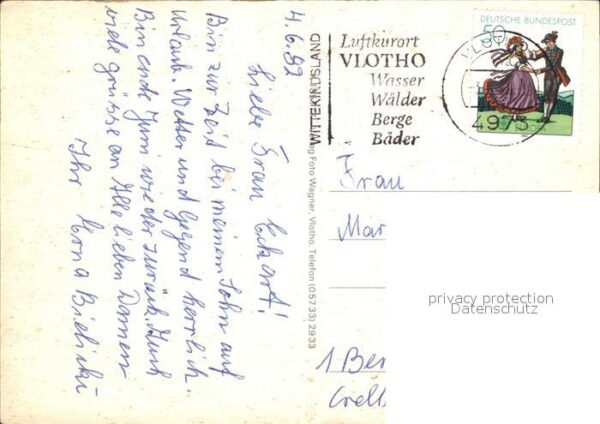 4.6.82
Liebe Frau Eckart!
Bin zur Zeit bei meinem Sohn auf
Urlaub. Wetter und Gegend herrlich.
Bin ende Juni wieder zurück. Auch
viele grüsse an Alle lieben Damen
Ihr
WITTEKINDSLAND
g Foto Wagner, Vlotho, Telefon (05733) 2933
Luftkurort
VLOTHO
Wasser
Wälder
Berge
Bäder
4973
DEUTSCHE BUNDESPOST
50
Frau
Mar
1 Ber
privacy protection
Datenschutz